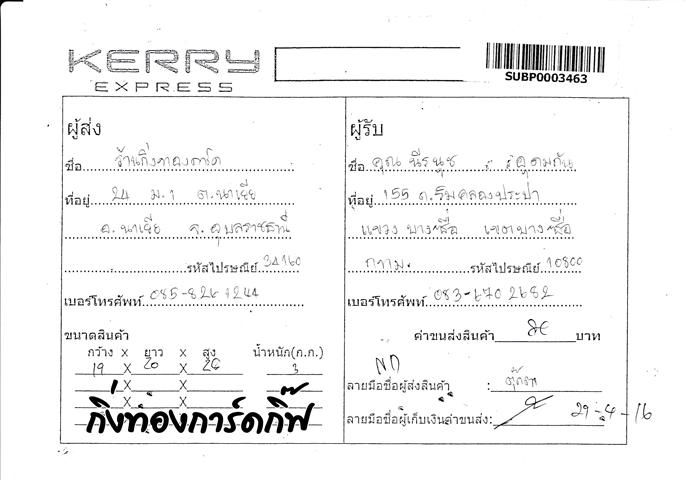 KERRY
EXPRESS
SUBP0003463
ผู้ส่ง
ชื่อ ร้านกิ่งทองการ์ด
ที่อยู่ 24 ม.1 ต.นาเยีย
อ.นาเยีย จ.อุบลราชธานี
รหัสไปรษณีย์ 34160
เบอร์โทรศัพท์ 085-826 1244
ขนาดสินค้า
กว้าง X ยาว X สูง น้ำหนัก(ก.ก.)
19 X 20 X 26 3
X X
X X
กิ่งทองการ์ดกิ๊ฟ
ผู้รับ
ชื่อ คุณ นีรนุช
ที่อยู่ 155 ถ.ริมคลองประปา
แขวง บางซื่อ เขตบางซื่อ
กทม. รหัสไปรษณีย์ 10800
เบอร์โทรศัพท์ 083-670 2682
ค่าขนส่งสินค้า บาท
ND
ลายมือชื่อผู้ส่งสินค้า :
ลายมือชื่อผู้เก็บเงินค่าขนส่ง: 29-4-16